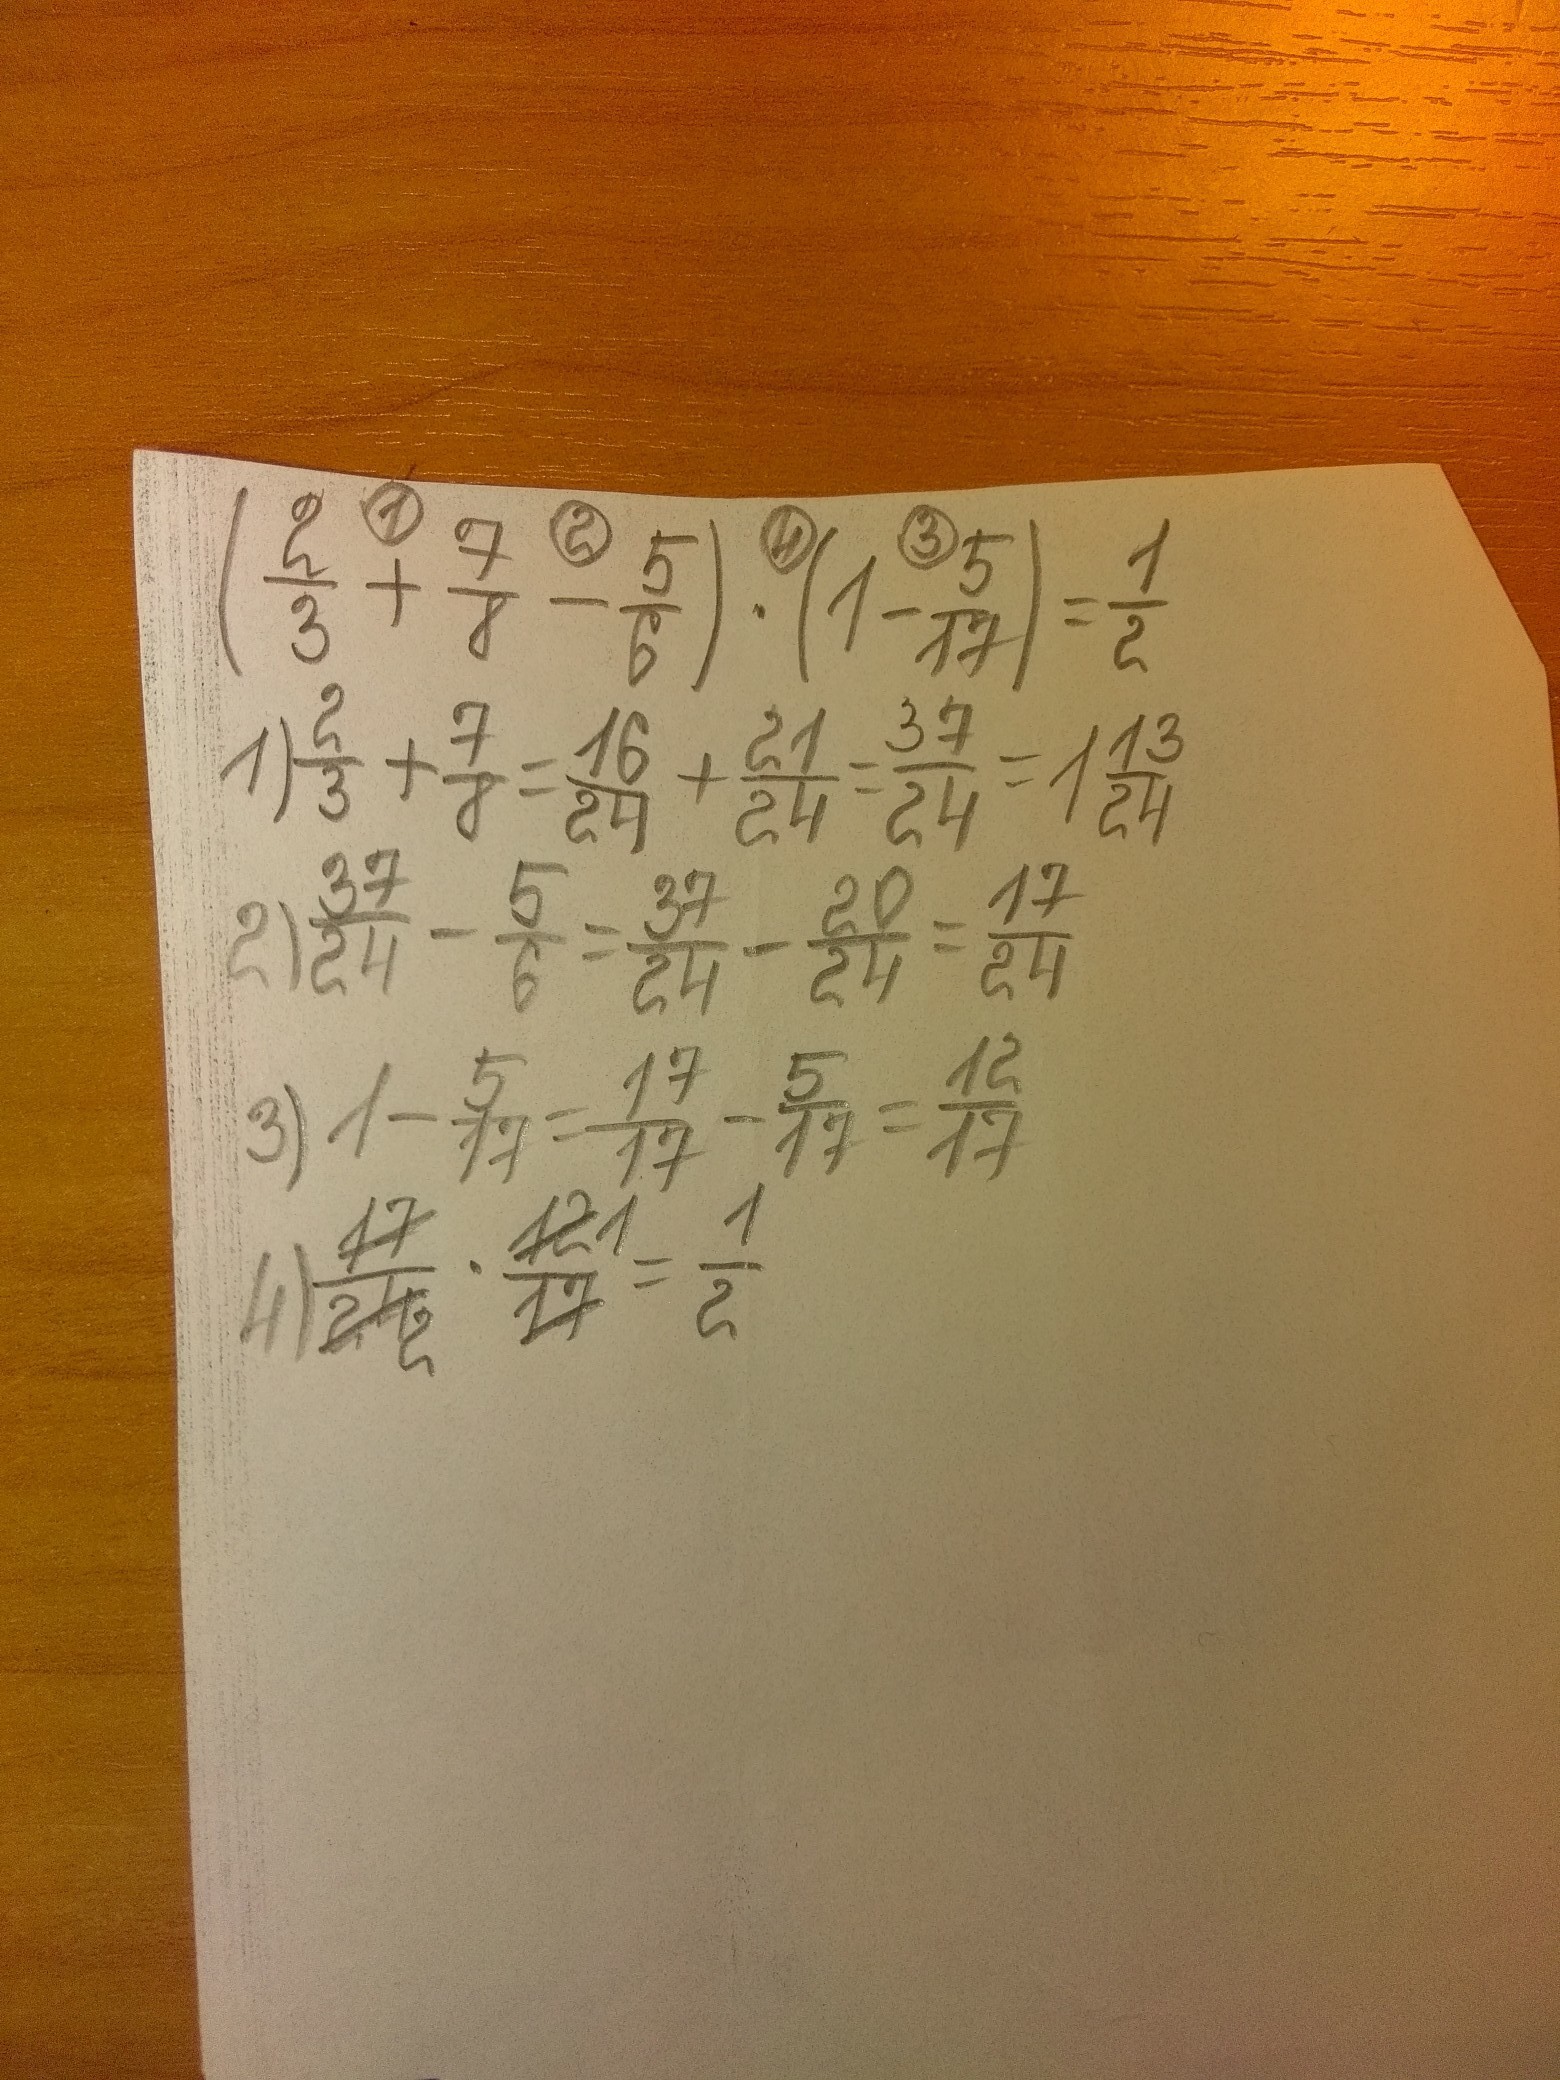 (2/3 +① 7/8 -② 5/6) ·④ (1 -③ 5/17) = 1/2
1) 2/3 + 7/8 = 16/24 + 21/24 = 37/24 = 1 13/24
2) 37/24 - 5/6 = 37/24 - 20/24 = 17/24
3) 1 - 5/17 = 17/17 - 5/17 = 12/17
4) 17/24 2 · 12 1/17 = 1/2